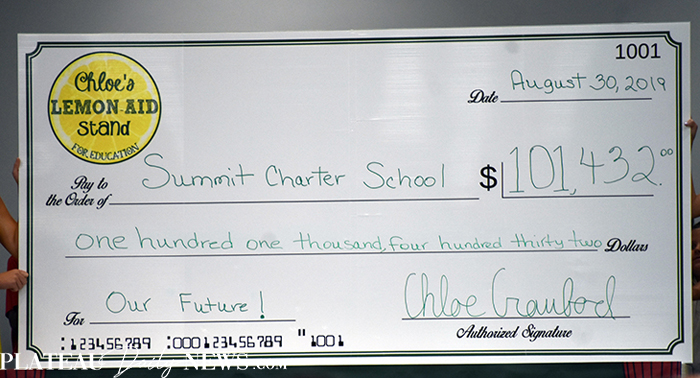 1001
Chloe's
LEMON-AID
Stand
FOR EDUCATION
Date August 30, 2019
Pay to
the Order of Summit Charter School $ 101,432.00
One hundred one thousand, four hundred thirty two Dollars
For Our Future!
Chloe Crawford
Authorized Signature
:123456789 :000123456789 "1001
PLATEAU Daily NEWS.COM